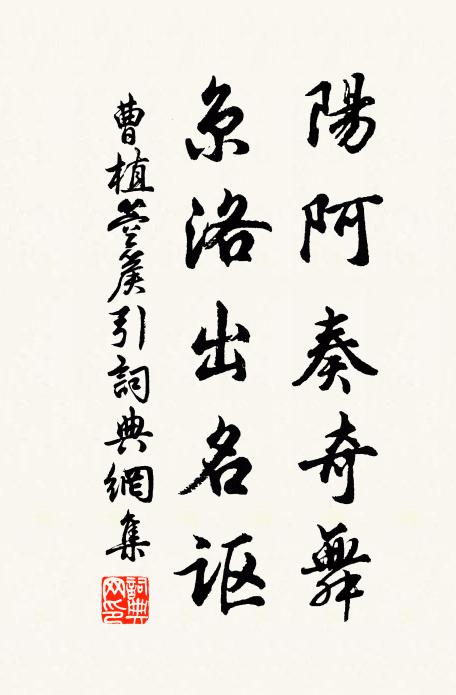 陽阿奏奇舞
京洛出名讴
曹植箜篌引詞典網集
詞典网印